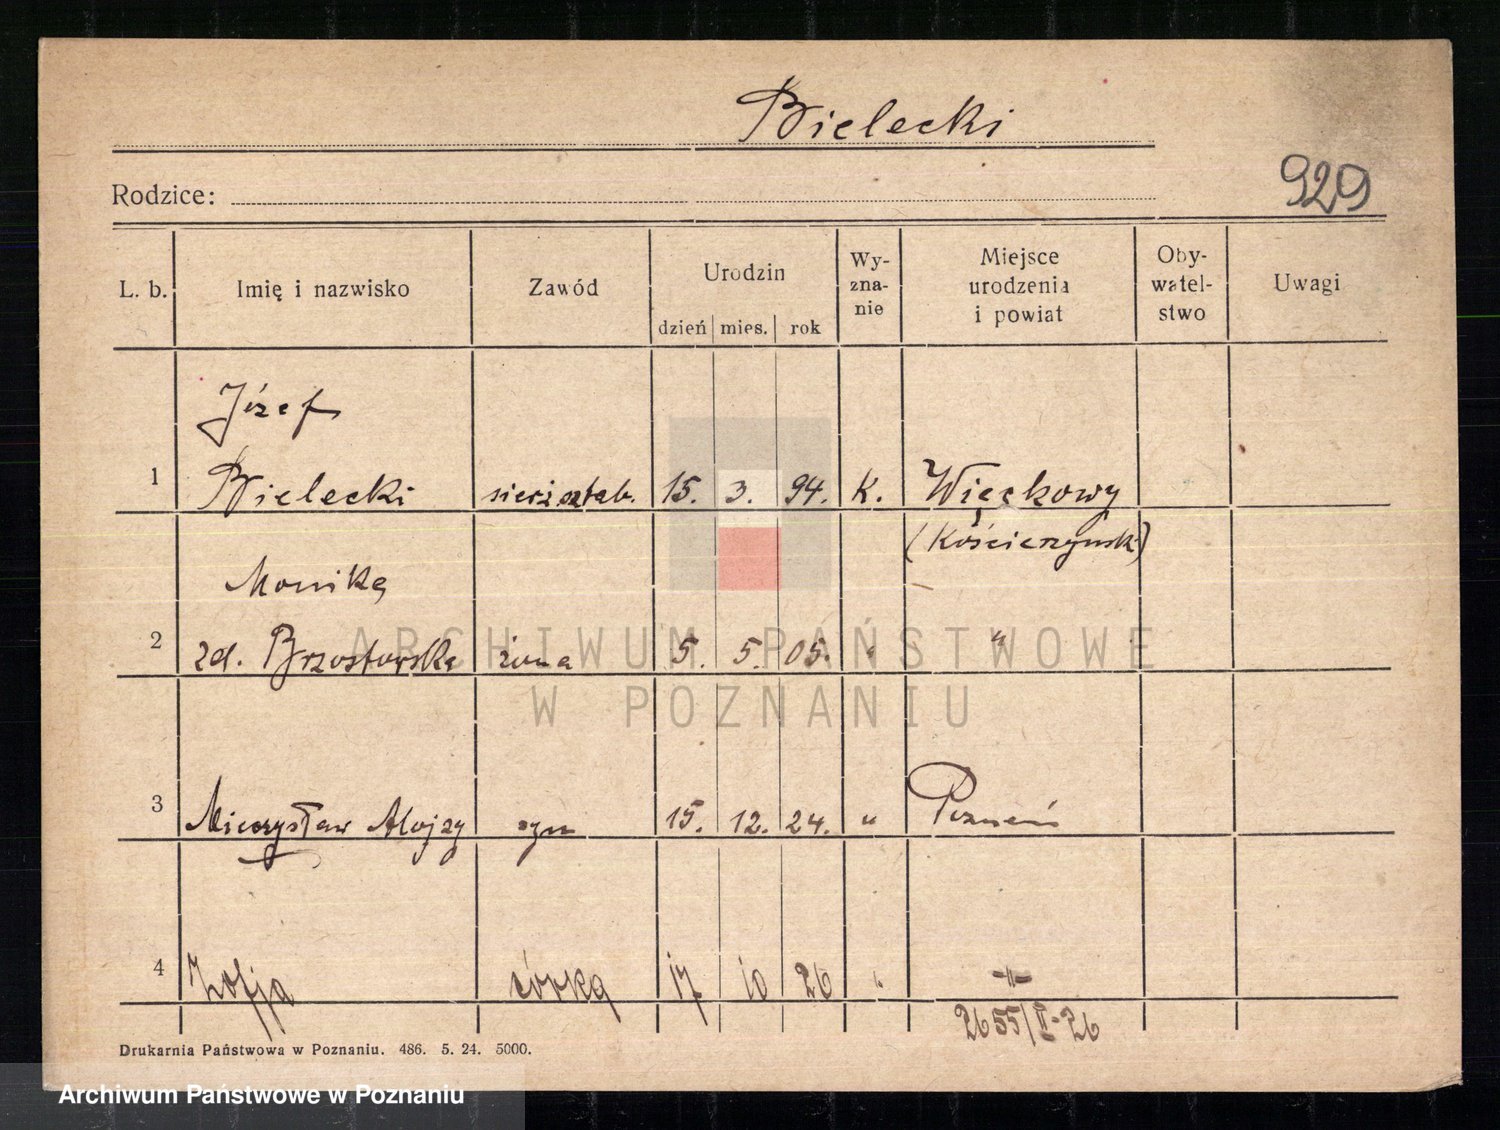 Bielecki
Rodzice:
929
L. b. Imię i nazwisko Zawód Urodzin dzień mies. rok Wy-zna-nie Miejsce urodzenia i powiat Oby-watel-stwo Uwagi
Józef
1 Bielecki sierż. sztab. 15. 3. 94. K. Więckowy
(Kościerzynsk.)
Monika
2 zd. Brzostowska żona 5. 5. 05. " "
3 Mieczysław Alojzy syn 15. 12. 24. " Poznań
4 Zofja córka 17 10 26 " -"-
2655/II-26
Drukarnia Państwowa w Poznaniu. 486. 5. 24. 5000.
ARCHIWUM PAŃSTWOWE
W POZNANIU
Archiwum Państwowe w Poznaniu